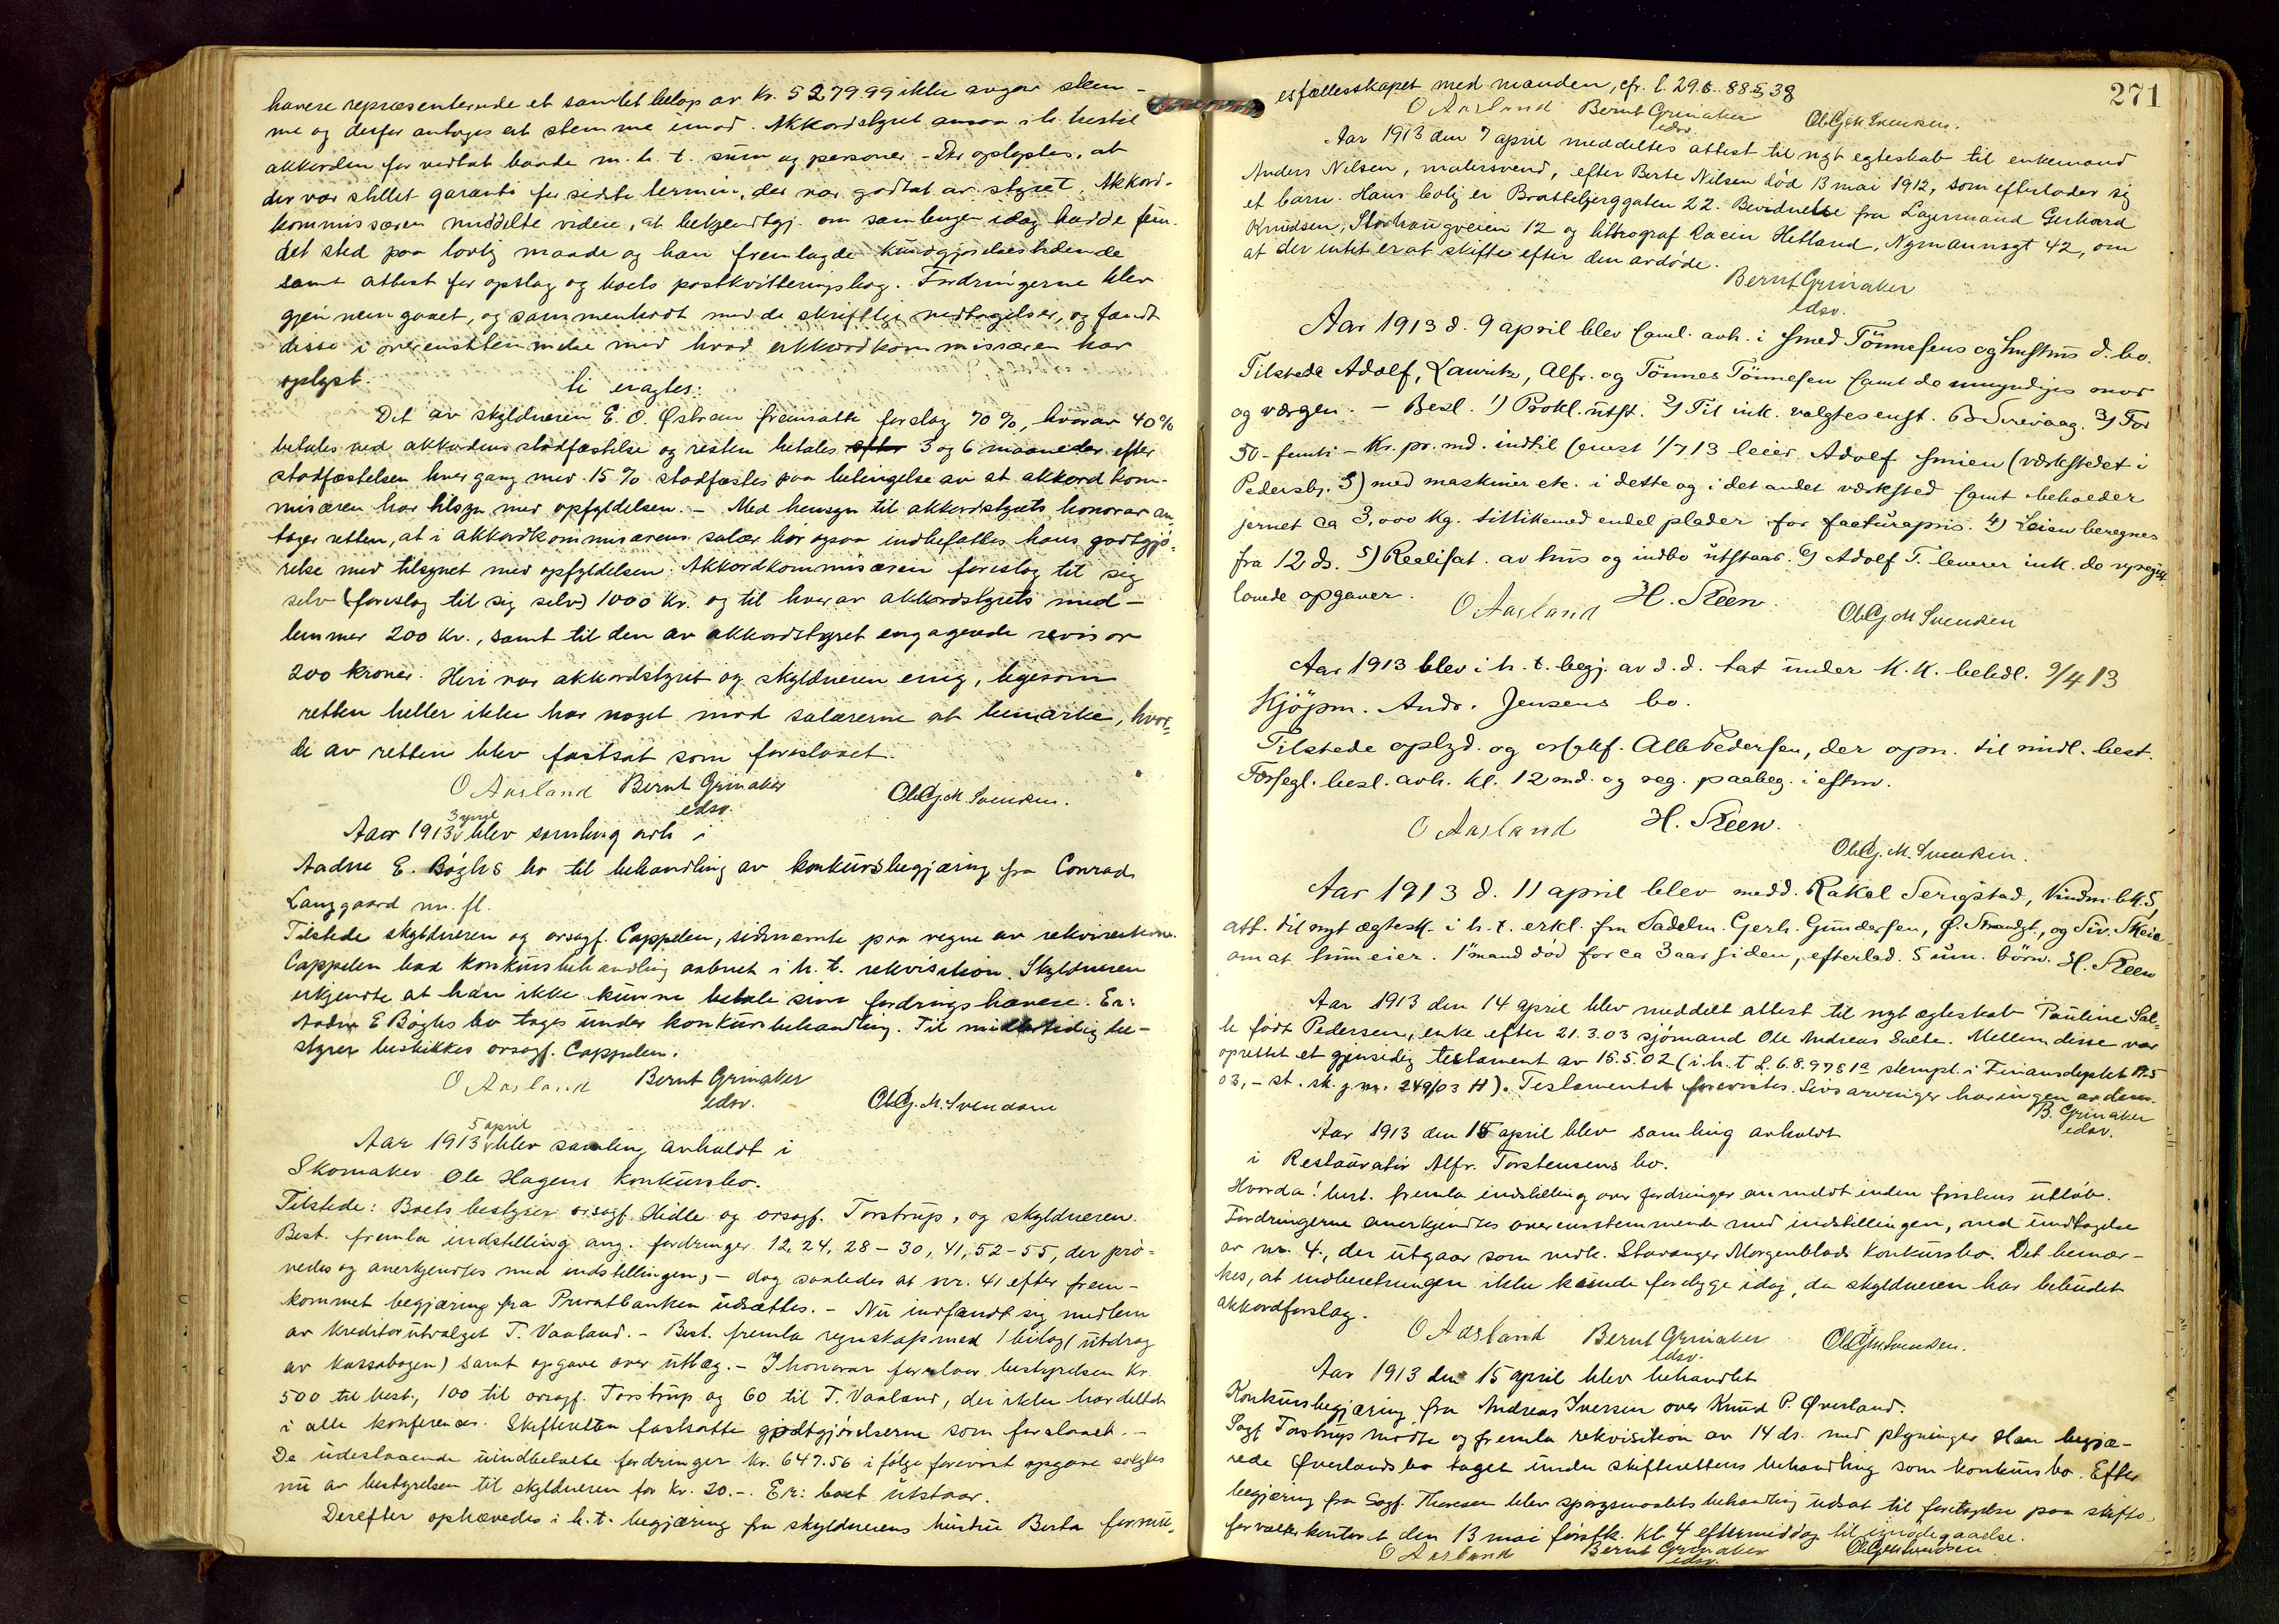 havere repræsenterende et samlet beløp av Kr. 5279.99 ikke avgav stem-
me og derfor antages at stemme imod. Akkordstyret ansaa i h. hertil
akkorden for vedtat baade m. h. t. sum og personer. - Det oplystes, at
der var stillet garanti for sidste termin, der var godtat av styret. Akkord-
kommissæren meddelte videre, at bekjendtgj. om samlingen idag hadde fun-
det sted paa lovlig maade og han fremlagde Kundgjørelsestidende
samt attest for opslag og boets postkvitteringsbog. Fordringerne blev
gjennemgaaet, og sammenholdt med de skriftlige vedtagelser, og fandt
disse i overensstemmelse med hvad akkordkommissæren har
oplyst.
ti eragtes:
Det av skyldneren E. O. Østram fremsatte forslag 70 %, hvorav 40 %
betales ved akkordens stadfæstelse og resten betales efter 3 og 6 maaneder efter
stadfæstelsen hver gang med 15 % stadfæstes paa betingelse av at akkordkom-
misæren har tilsyn med opfyldelsen. - Med hensyn til akkordstyrets honorar an-
tager retten, at i akkordkommisærens salær bør ogsaa indbefattes hans godtgjø-
relse med tilsynet med opfyldelsen. Akkordkommisæren foreslog til sig
selv (foreslog til sig selv) 1000 Kr. og til hver av akkordstyrets med-
lemmer 200 Kr., samt til den av akkordstyret engagerede revisor
200 kroner. Heri var akkordstyret og skyldneren enig, ligesom
retten heller ikke har noget mod salærerne at bemærke, hvor-
de av retten blev fastsat som foreslaaet.
O Aasland Bernt Grinaker edsv. Ole Gj. M. Svendsen.
3 april
Aar 1913 blev samling avh i
Aadne E. Bøghs bo til behandling av konkursbegjæring fra Conrad
Langgaard m. fl.
Tilstede skyldneren og orsagf. Cappelen, sidstnævnte paa vegne av rekvirenterne.
Cappelen bad konkursbehandling aabnet i h. t. rekvisition. Skyldneren
erkjendte at han ikke kunne betale sine fordringshavere. Er:
Aadne E Bøghs bo tages under konkursbehandling. Til midlertidig be-
styrer beskikkes orsagf. Cappelen.
O Aasland Bernt Grinaker edsv. Ole Gj. M. Svendsen
5 april
Aar 1913 blev samling avholdt i
Skomaker Ole Hagens Konkursbo.
Tilstede: Boets bestyrer orsagf. Hidle og orsagf. Torstrup, og skyldneren.
Best. fremla indstilling ang. fordringer 12, 24, 28 - 30, 41, 52 - 55, der prø-
vedes og anerkjendtes med indstillingen, - dog saaledes at nr. 41 efter frem-
kommet begjæring fra Privatbanken utsættes. - Nu indfandt sig medlem
av kreditorutvalget T. Vaaland. - Best. fremla regnskap med 1 bilag (utdrag
av kassabogen) samt opgave over utlæg. - I honorar foreslaar bestyrelsen Kr.
500 til best., 100 til orsagf. Torstrup og 60 til T. Vaaland, der ikke har deltat
i alle konferenser. Skifteretten fastsatte godtgjørelserne som foreslaaet. -
De udestaaende uindbetalte fordringer kr. 647.56 ifølge forevist opgave solgtes
nu av bestyrelsen til skyldneren for Kr. 20.-. Er: boet utstaar.
Derefter ophævedes i h. t. begjæring fra skyldnerens hustru Berta formu-
271
esfællesskapet med manden, cfr. l. 29.6.88 § 38
O Aasland Bernt Grinaker edsv. Ole Gj. M. Svendsen.
Aar 1913 den 7 april meddeltes attest til nyt egteskab til enkemand
Anders Nilsen, malersvend, efter Berte Nilsen død 13 mai 1912, som efterlader sig
et barn. Hans bolig er Brattebjerggaten 22. Bevidnelse fra Lagermand Gerhard
Knudsen, Storhaugveien 12 og littograf Racin Hetland, Nymannsgt 42, om
at der intet er at skifte efter den avdøde.
Bernt Grinaker
edsv.
Aar 1913 d. 9 april blev saml. avh. i smed Tönnesens og hustrus d. bo.
Tilstede Adolf, Lauritz, Alfr. og Tönnes Tönnesen samt de umyndiges mor
og værgen. - Besl. 1) Prokl. utst. 2) Til ink. valgtes enst. B Svevaag. 3) For
50 - femti - Kr. pr. md. indtil senest 1/7 13 leier Adolf smien (værkstedet i
Pedersg. 3) med maskiner etc. i dette og i det andet værksted samt beholder
jernet ca 3,000 Kg. tillikemed endel plader for facturapris. 4) Leien beregnes
fra 12 ds. 5) Realisat. av hus og indbo utstaar. 6) Adolf T. leverer ink. de
lovede opgaver. O Aasland H. Steen. Ole Gj. M Svendsen
Aar 1913 blev i h. t. begj. av d. d. tat under K. K. behdl. 9/4 13
Kjöpm. Andr. Jensens bo.
Tilstede oplgd. og orsakf. Alb Pedersen, der opn. til midl. best.
Forsegl. besl. avh. kl. 12 md. og reg. paabeg. i eftm.
O Aasland H. Steen. Ole Gj. M. Svendsen.
Aar 1913 d. 11 april blev medd. Rakel Serigstad, Vindm. bk. 5,
att. til nyt ægtesk. i h. t. erkl. fra Sadelm. Gerh. Gundersen, Ø. Strandgt., og Siv. Skeie
om at hun eier. 1ᵉ mand död for ca 3 aar siden, efterlod. 5 um. börn. H. Steen
Aar 1913 den 14 april blev meddelt attest til nyt ægteskab Pauline Sal-
te født Pedersen, enke efter 21.3.03 sjømand Ole Andreas Salte. Mellem disse var
oprettet et gjensidig testament av 15.5.02 (i. h. t L. 6.8.97 § 1ª stempl. i Finansdeptet 19.5
03, - st. sk. j. nr. 249/03 H). Testamentet forevistes. Livsarvinger har ingen av dem.
B. Grinaker
edsv.
Aar 1913 den 15 april blev samling avholdt
i Restauratør Alfr. Torstensens bo.
Hvorda: best. fremla indstilling over fordringer anmeldt inden fristens utløb.
Fordringerne anerkjendtes overensstemmende med indstillingen, med undtagelse
av nr. 4, der utgaar som vedk. Stavanger Morgenblads Konkursbo. Det bemær-
kes, at indberetningen ikke kunde forelygge idag, da skyldneren har bebudet
akkordforslag.
O Aasland Bernt Grinaker edsv. Ole Gj. M. Svendsen.
Aar 1913 den 15 april blev behandlet
Konkursbegjæring fra Andreas Iversen over Knud P. Øverland.
Sagf Torstrup mødte og fremla rekvisition av 14 ds. med Han begjæ-
rede Øverlands bo taget under skifterettens behandling som konkursbo. Efter
begjæring fra Sagf. Thorsen blev spørgsmaalets behandling udsat til foretagelse paa skifte-
forvalterkontoret den 13 mai førstk. Kl. 4 eftermiddag til imødegaaelse.
O Aasland Bernt Grinaker edsv. Ole Gj. M. Svendsen